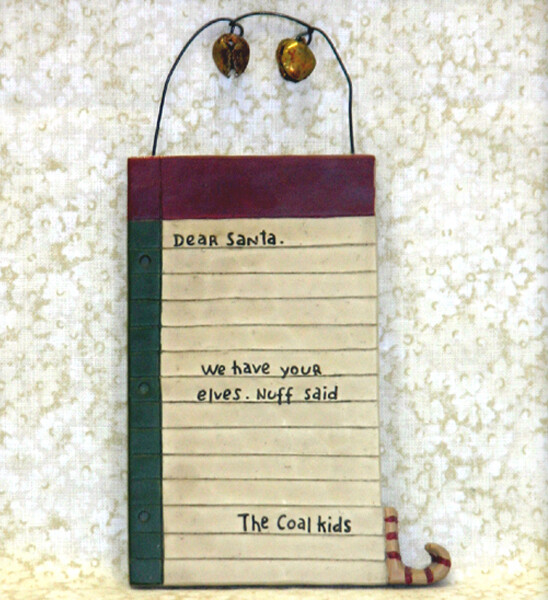 Dear Santa.
We have your
elves. Nuff said
The Coal kids